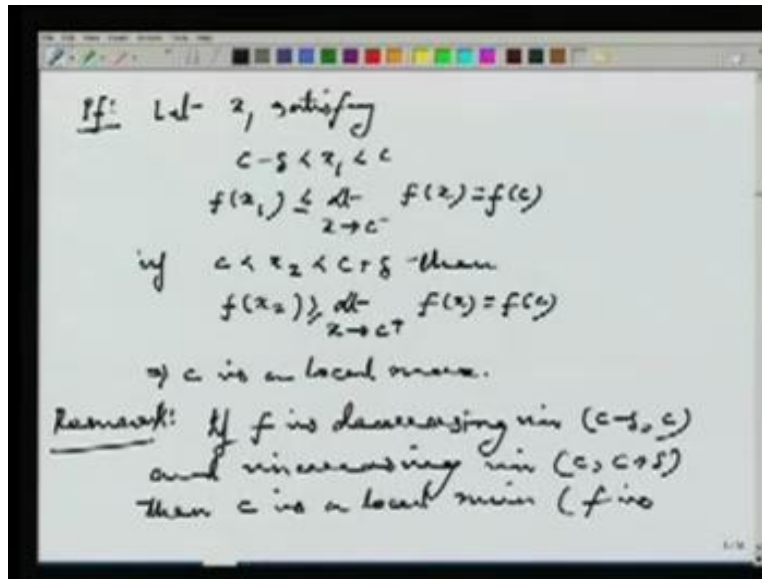 Pf: Let x₁ satisfy
c-δ < x₁ < c
f(x₁) ≤ lt x→c⁻ f(x) = f(c)
if c < x₂ < c+δ then
f(x₂) ≥ lt x→c⁺ f(x) = f(c)
⇒ c is a local max.
Remark: If f is decreasing in (c-δ, c)
and increasing in (c, c+δ)
then c is a local min (f is